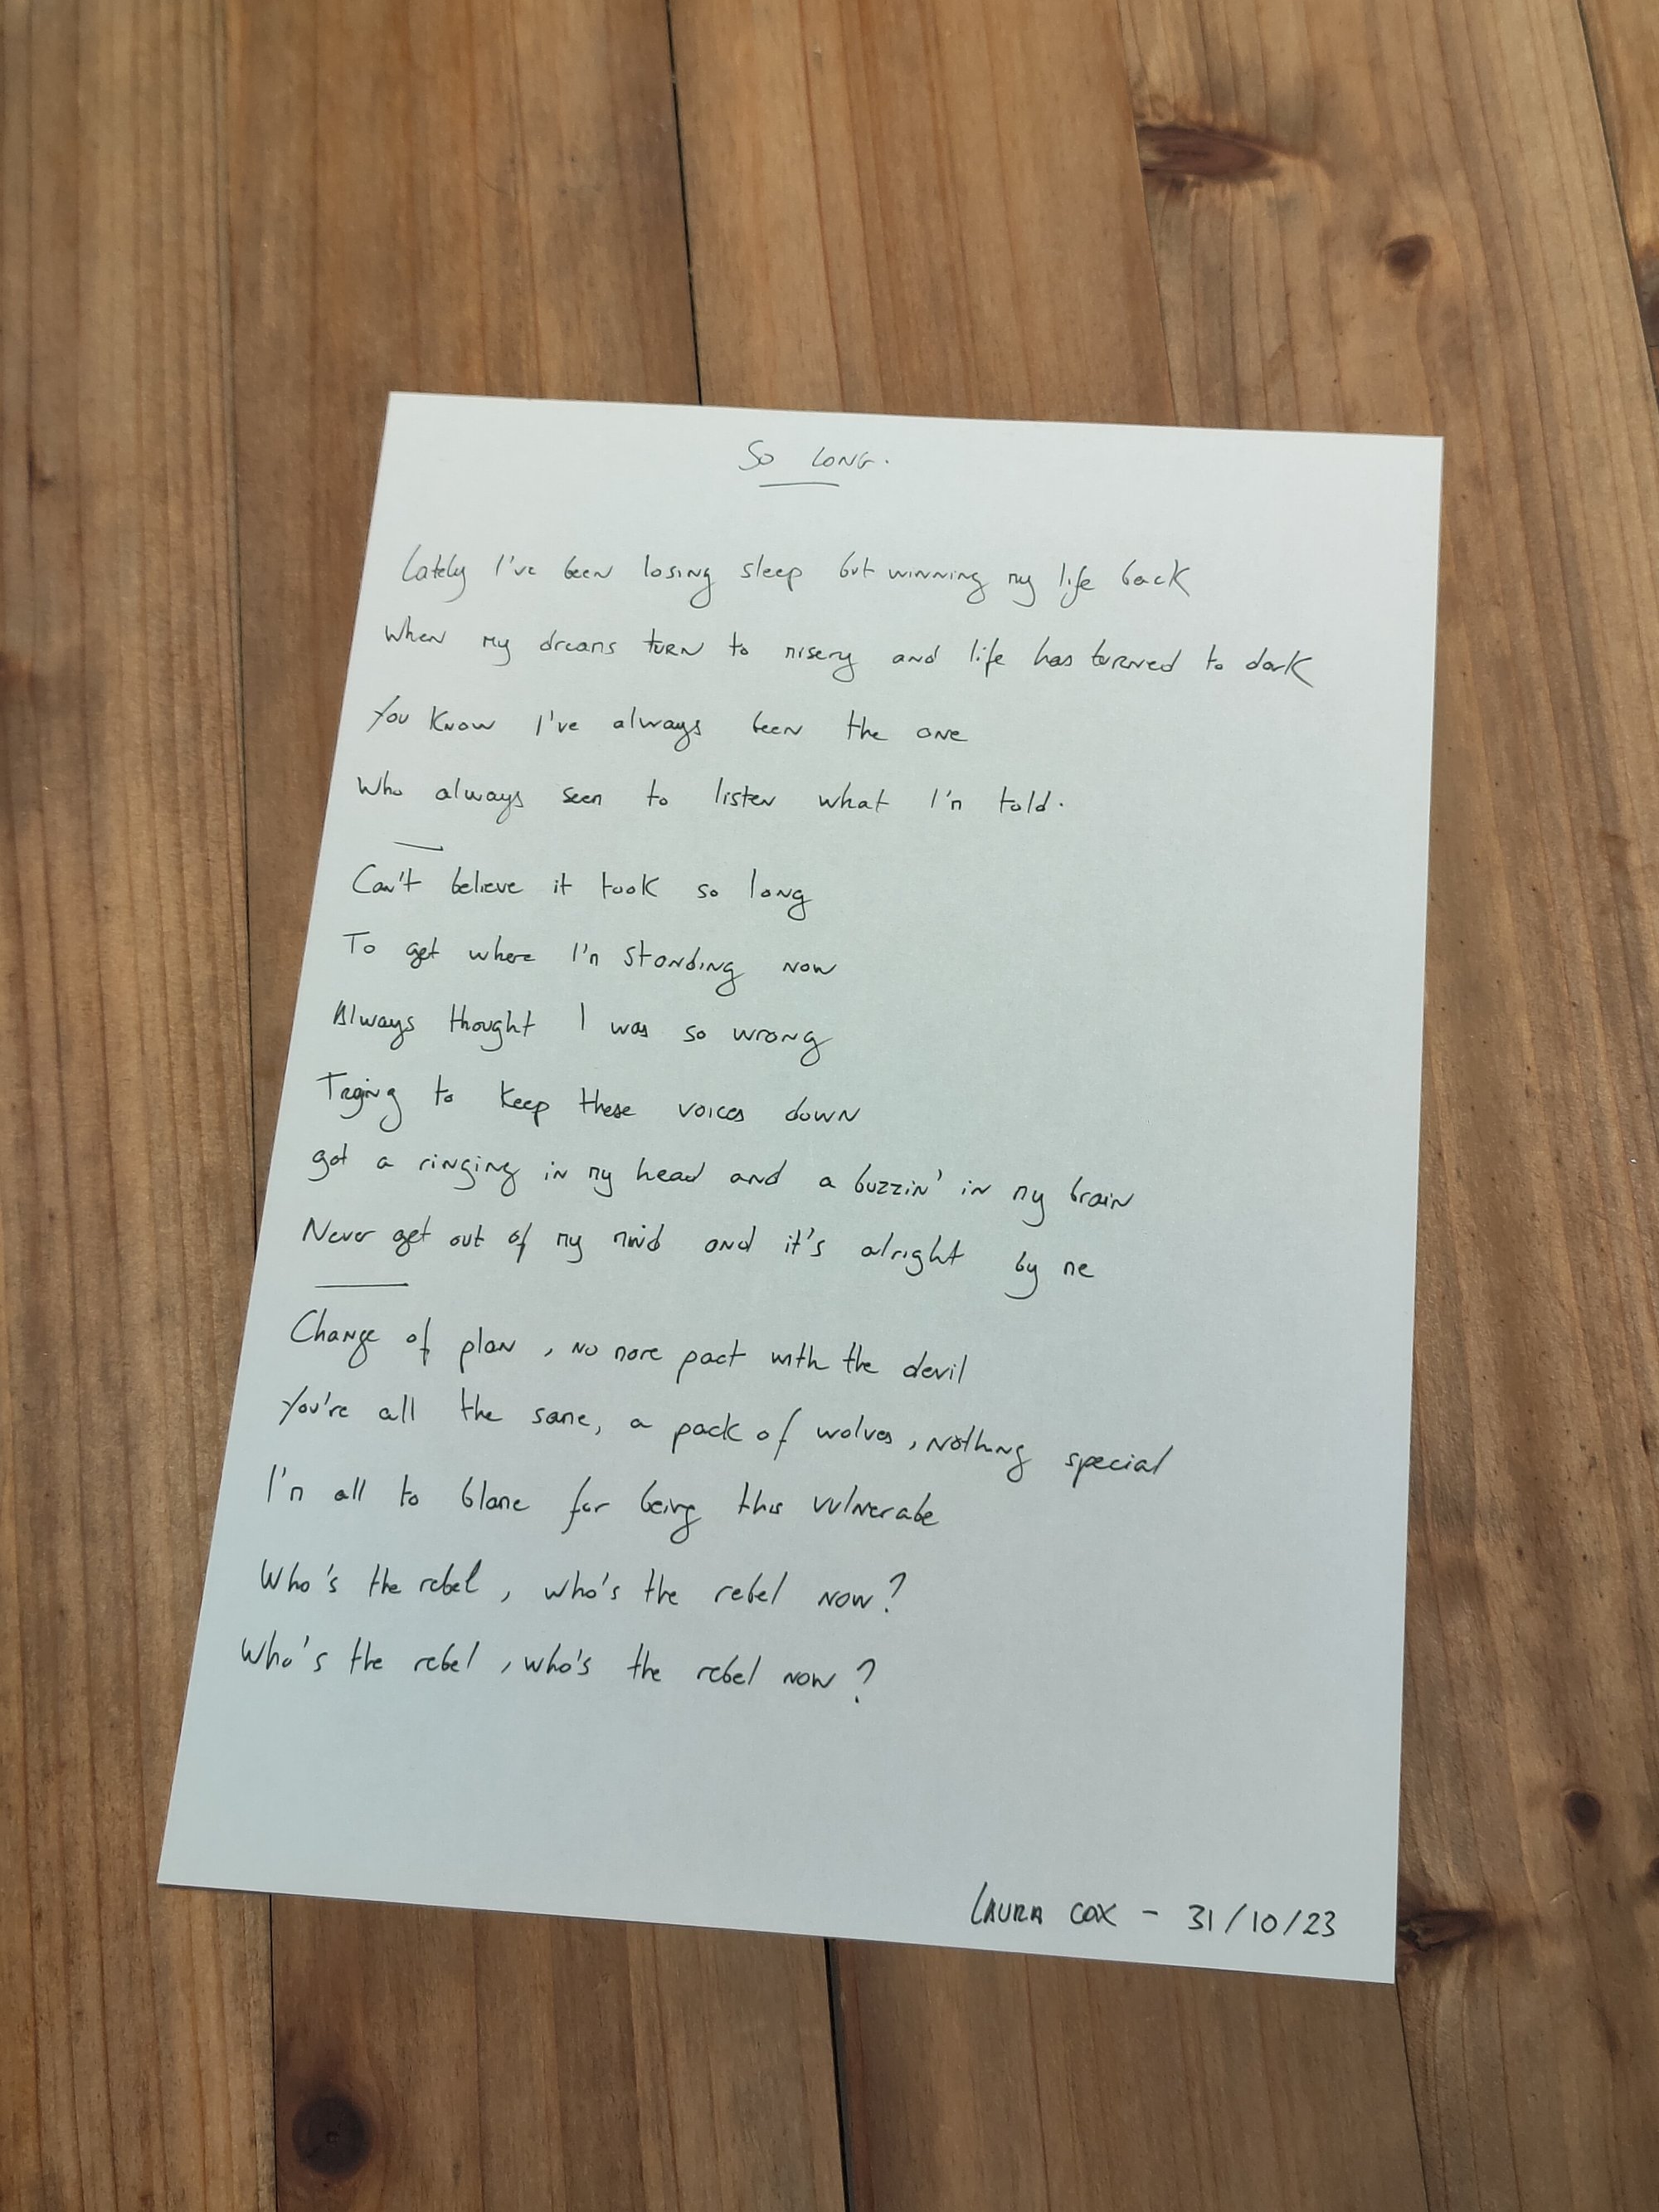 So LONG.
Lately I've been losing sleep but winning my life back
When my dreams turn to misery and life has turned to dark
You know I've always been the one
Who always seem to listen what I'm told.
Can't believe it took so long
To get where I'm standing now
Always thought I was so wrong
Trying to keep these voices down
got a ringing in my head and a buzzin' in my brain
Never get out of my mind and it's alright by me
Change of plan, no more pact with the devil
You're all the same, a pack of wolves, nothing special
I'm all to blame for being this vulnerabe
Who's the rebel, who's the rebel now?
Who's the rebel, who's the rebel now?
LAURA COX - 31/10/23